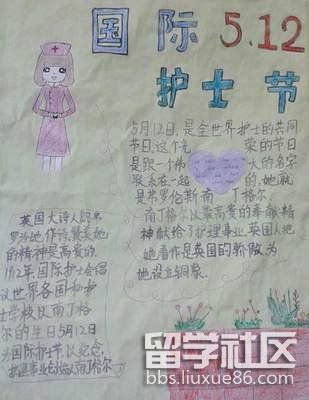 国际5.12
护士节
5月12日,是全世界护士的共同
节日,这个光荣的节日
是跟一个伟大的名字
联系在一起的,她就
是弗罗伦斯·南丁格尔。
南丁格尔以最高贵的奉献精神
精神献给了护理事业,英国人把
她看作是英国的骄傲为
她设立铜象
英国大诗人
罗 她作诗,赞美她
的精神是高贵的
1912年国际护士会倡
议世界各国和护
士学校以南丁格
尔的生日5月12日
为国际护士节以纪念
护理事业创始人南丁格尔
留学社区
bbs.liuxue86.com